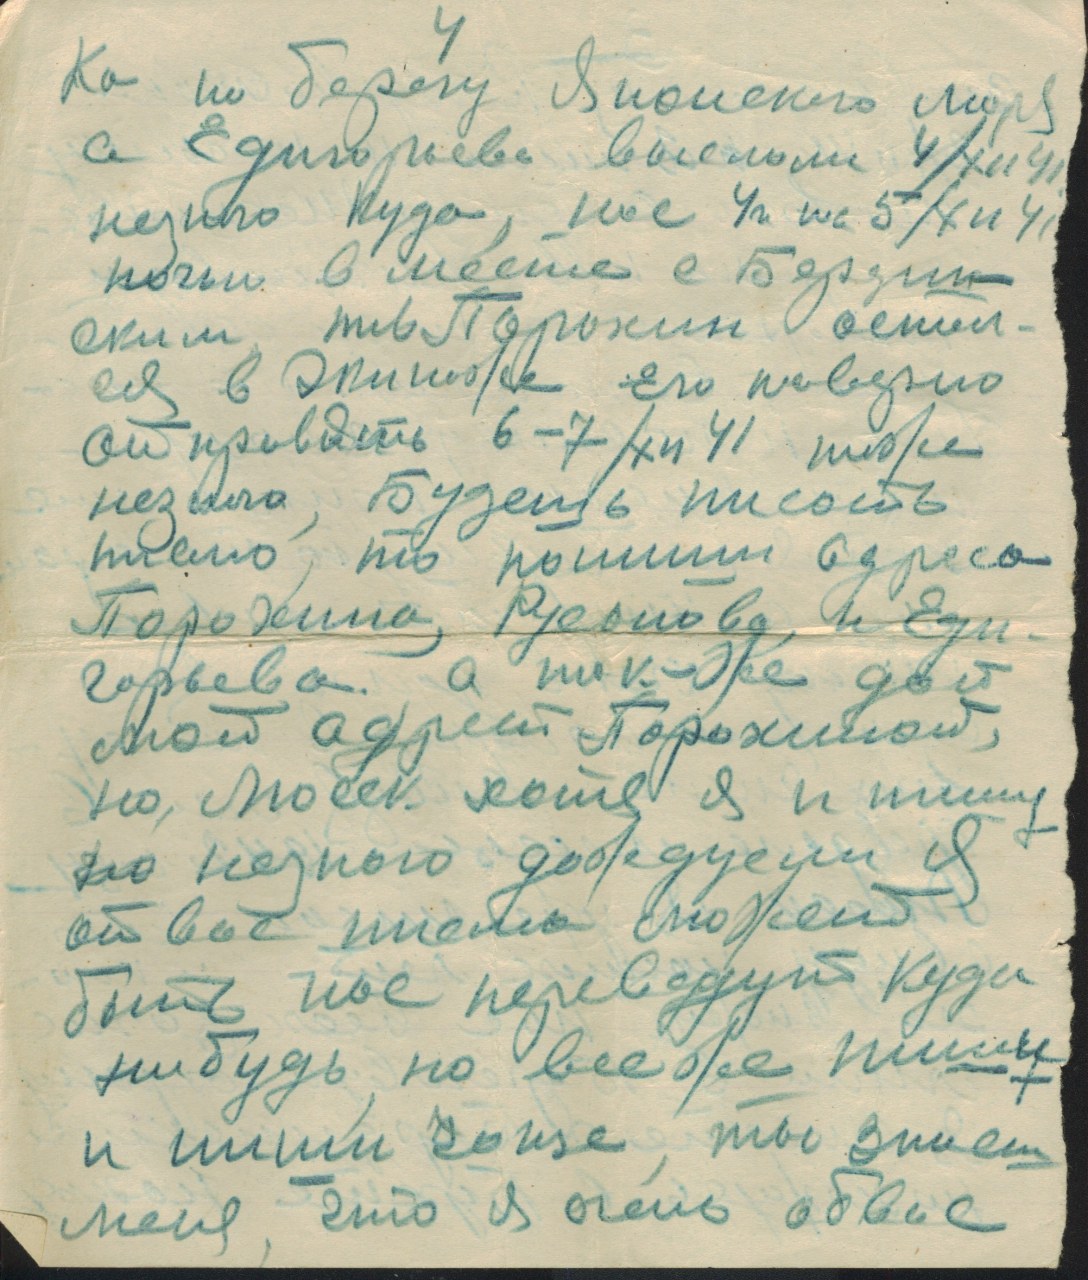 4
ка по берегу Японского моря
а Едигорьева выслали 4/XII 41
незного куда, нас 4 на 5/XII 41
ночи в месте с Бердин
ским, тов Порохин остал-
ся в Экипаже его наверно
отправять 6-7/XII 41 тоже
незного, Будешь писать
писмо, то пошли адреса
Порохина, Русинова, и Еди-
горьева. а так-же дай
мой адрест Порохиной,
но, Люсек хотя я и пишу
но незного дождусили я
от вас писма может
быть нас переведут куда
нибудь, но все же пишы
и пиши чаще, ты знаеш
меня, что я очень обвас